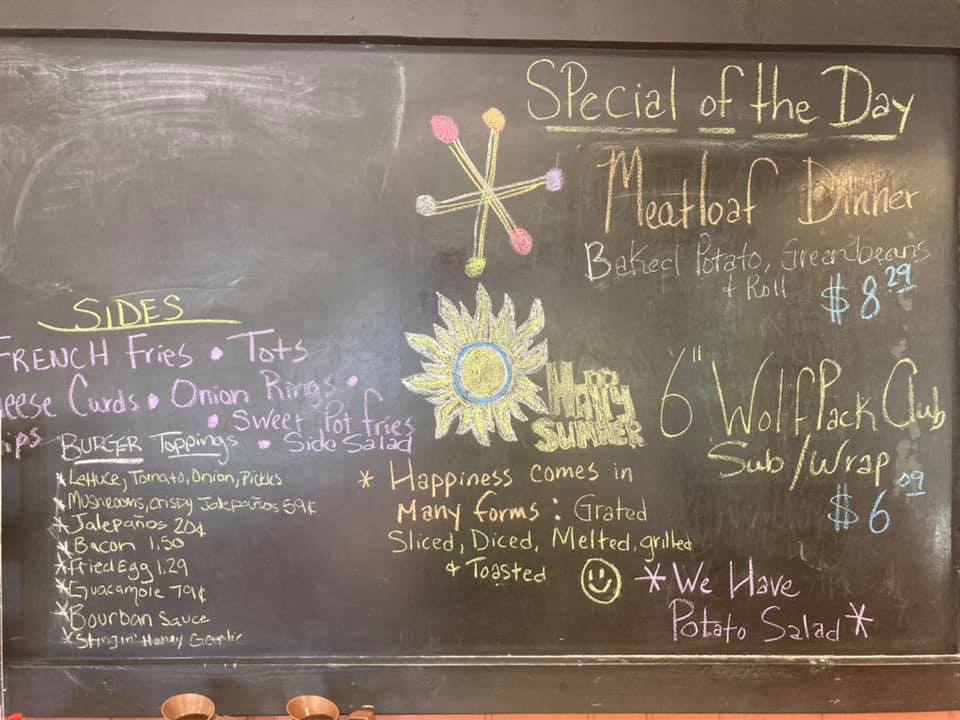 SPecial of the Day
Meatloaf Dinner
Baked Potato, Greenbeans
& Roll
$8 29
6" WolfPack Club
Sub/Wrap
$6 09
SIDES
FRENCH Fries • Tots
eese Curds • Onion Rings •
• Sweet Pot fries
ps
• Side Salad
BURGER Toppings
* Lettuce, Tomato, Onion, Pickles
* Mushrooms, crispy Jalepaños 59¢
* Jalepaños 20¢
* Bacon 1.50
* Fried Egg 1.29
* Guacamole 79¢
* Bourban Sauce
* Stingin' Honey Garlic
Happy
SUMMER
* Happiness comes in
Many forms : Grated
Sliced, Diced, Melted, grilled
& Toasted
* We Have
Potato Salad *